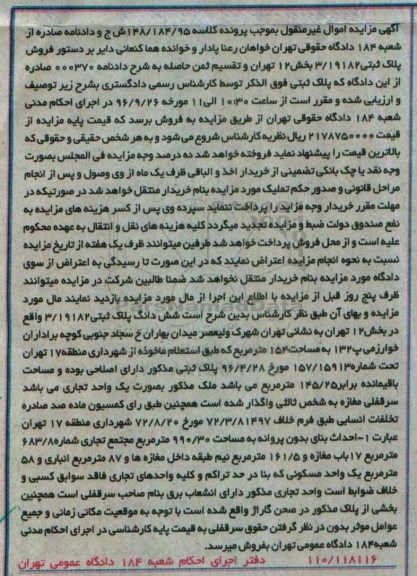 آگهی مزایده اموال غیرمنقول بموجب پرونده کلاسه ۱۴۸/۱۸۴/۹۵ش ج و دادنامه صادره از
شعبه ۱۸۴ دادگاه حقوقی تهران خواهان رعنا پادار و خوانده هما کنعانی دایر بر دستور فروش
پلاک ثبتی۳/۱۹۱۸۲ بخش۱۲ تهران و تقسیم ثمن حاصله به شرح دادنامه ۰۰۰۳۷۰ صادره
از این دادگاه که پلاک ثبتی فوق الذکر توسط کارشناس رسمی دادگستری بشرح زیر توصیف
و ارزیابی شده و مقرر است از ساعت ۱۰:۳۰ الی۱۱ مورخه ۹۶/۹/۲۶ در اجرای احکام مدنی
شعبه ۱۸۴ دادگاه حقوقی تهران از طریق مزایده به فروش برسد که قیمت پایه مزایده از
قیمت ۲۱۷۸۷۵۰۰۰۰ ریال نظریه کارشناس شروع می شود و به هر شخص حقیقی و حقوقی که
بالاترین قیمت را پیشنهاد نماید فروخته خواهد شد ده درصد وجه مزایده فی المجلس بصورت
وجه نقد یا چک بانکی تضمینی از خریدار اخذ و الباقی ظرف یک ماه از وی وصول و پس از انجام
مراحل قانونی و صدور حکم تملیک مورد مزایده بنام خریدار منتقل خواهد شد در صورتیکه در
مهلت مقرر خریدار وجه مزایده را پرداخت ننماید سپرده وی پس از کسر هزینه های مزایده به
نفع صندوق دولت ضبط و مزایده تجدید میگردد کلیه هزینه های نقل و انتقال به عهده محکوم
علیه است و از محل فروش پرداخت خواهد شد طرفین میتوانند ظرف یک هفته از تاریخ مزایده
نسبت به نحوه انجام مزایده اعتراض نمایند که در این صورت تا رسیدگی به اعتراض از سوی
دادگاه مورد مزایده بنام خریدار منتقل نخواهد شد ضمنا طالبین شرکت در مزایده میتوانند
ظرف پنج روز قبل از مزایده با اطلاع این اجرا از مال مورد مزایده بازدید نمایند مال مورد
مزایده و بهای آن طبق نظر کارشناس بدین شرح است شش دانگ پلاک ثبتی۳/۱۹۱۸۲ واقع
در بخش۱۲ تهران به نشانی تهران شهرک ولیعصر میدان بهاران خ سجاد جنوبی کوچه براداران
خوارزمی پ۱۳۲ به مساحت۱۵۴ مترمربع که طبق استعلام ماخوذه از شهرداری منطقه۱۷ تهران
تحت شماره۱۵۷/۱۵۹۱۳ مورخ ۹۶/۴/۲۸ پلاک ثبتی مذکور دارای اصلاحی بوده و مساحت
باقیمانده برابر۱۴۵/۲۵ مترمربع می باشد ملک مذکور بصورت یک واحد تجاری می باشد
سرقفلی مغازه به شخص ثالثی واگذار شده است همچنین طبق رای کمسیون ماده صد صادره
تخلفات انسابی طبق فرم خلاف ۷۲/۳/۸۱۴۹۷ مورخ ۷۲/۸/۲۰ شهرداری منطقه ۱۷ تهران
عبارت ۱-احداث بنای بدون پروانه به مساحت ۹۹۰/۳۰ مترمربع مجتمع تجاری شماره۶۸۳/۸۰
مترمربع ۱۷باب مغازه و ۱۶۱/۵ مترمربع نیم طبقه داخل مغازه ها و ۸۷ مترمربع انباری و ۵۸
مترمربع یک واحد مسکونی که بنا در حد تراکم و کلیه واحدهای تجاری فاقد سوابق کسبی و
خلاف ضوابط است واحد تجاری مذکور دارای انشعاب برق بنام صاحب سرقفلی است همچنین
بخشی از پلاک مذکور در صحن گاراژ واقع شده است با توجه به موقعیت مکانی زمانی و جمیع
عوامل موثر بدون در نظر گرفتن حقوق سرقفلی به قیمت پایه کارشناسی در اجرای احکام مدنی
شعبه۱۸۴ دادگاه عمومی تهران بفروش میرسد.
۱۱۰/۱۱۸۱۱۶ دفتر اجرای احکام شعبه ۱۸۴ دادگاه عمومی تهران